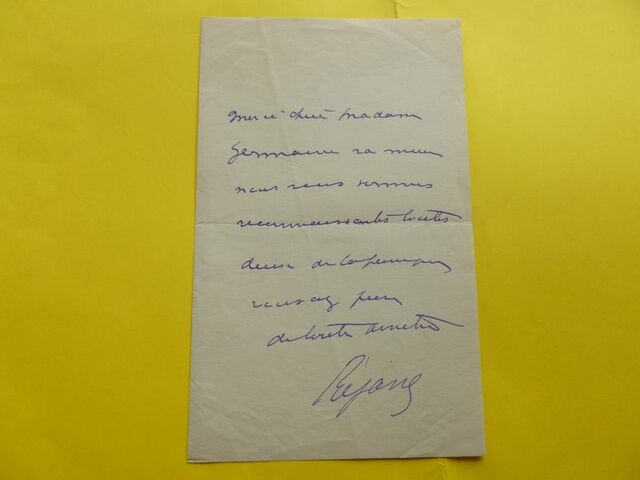 Merci chère Madame
Germaine va mieux
nous vous sommes
reconnaissantes toutes
deux de la
vous
de toute amitié
Réjane